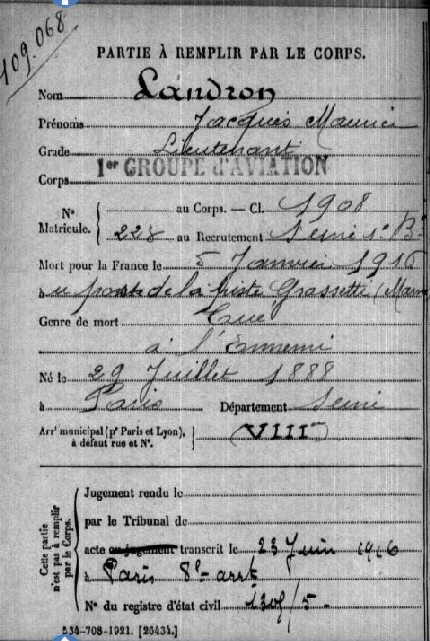 109.068
PARTIE À REMPLIR PAR LE CORPS.
Nom Landron
Prénoms Jacques Maurice
Grade Lieutenant
Corps 1er GROUPE d'AVIATION
N° Matricule. { au Corps. — Cl. 1908
228 au Recrutement Seine 1er B
Mort pour la France le 5 Janvier 1916
à de la Grassette (Marne
Genre de mort Tué
à l'Ennemi
Né le 29 Juillet 1888
à Paris Département Seine
Arrt municipal (pr Paris et Lyon), à défaut rue et N°. { VIIIe
Cette partie n'est pas à remplir par le Corps.
Jugement rendu le
par le Tribunal de
acte ou jugement transcrit le 23 Juin 1916
à Paris 8e arrt
N° du registre d'état civil
534-708-1921. [26434.]